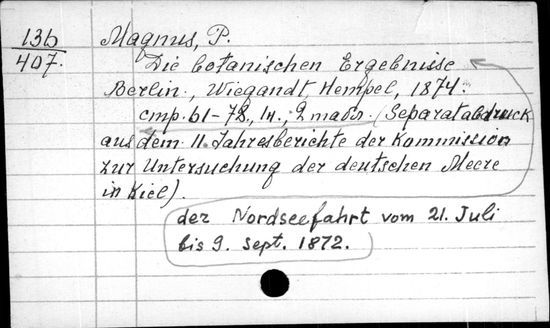 13b
407.
Magnus, P.
Die botanischen Ergebnisse
Berlin., Wiegandt, Hempel, 1874.
стр. 61-78., ill., 2 табл. (Separatabdruck
aus dem II. Jahresberichte der Kommission
zur Untersuchung der deutschen Meere
in Kiel).
der Nordseefahrt vom 21. Juli
bis 9. Sept. 1872.